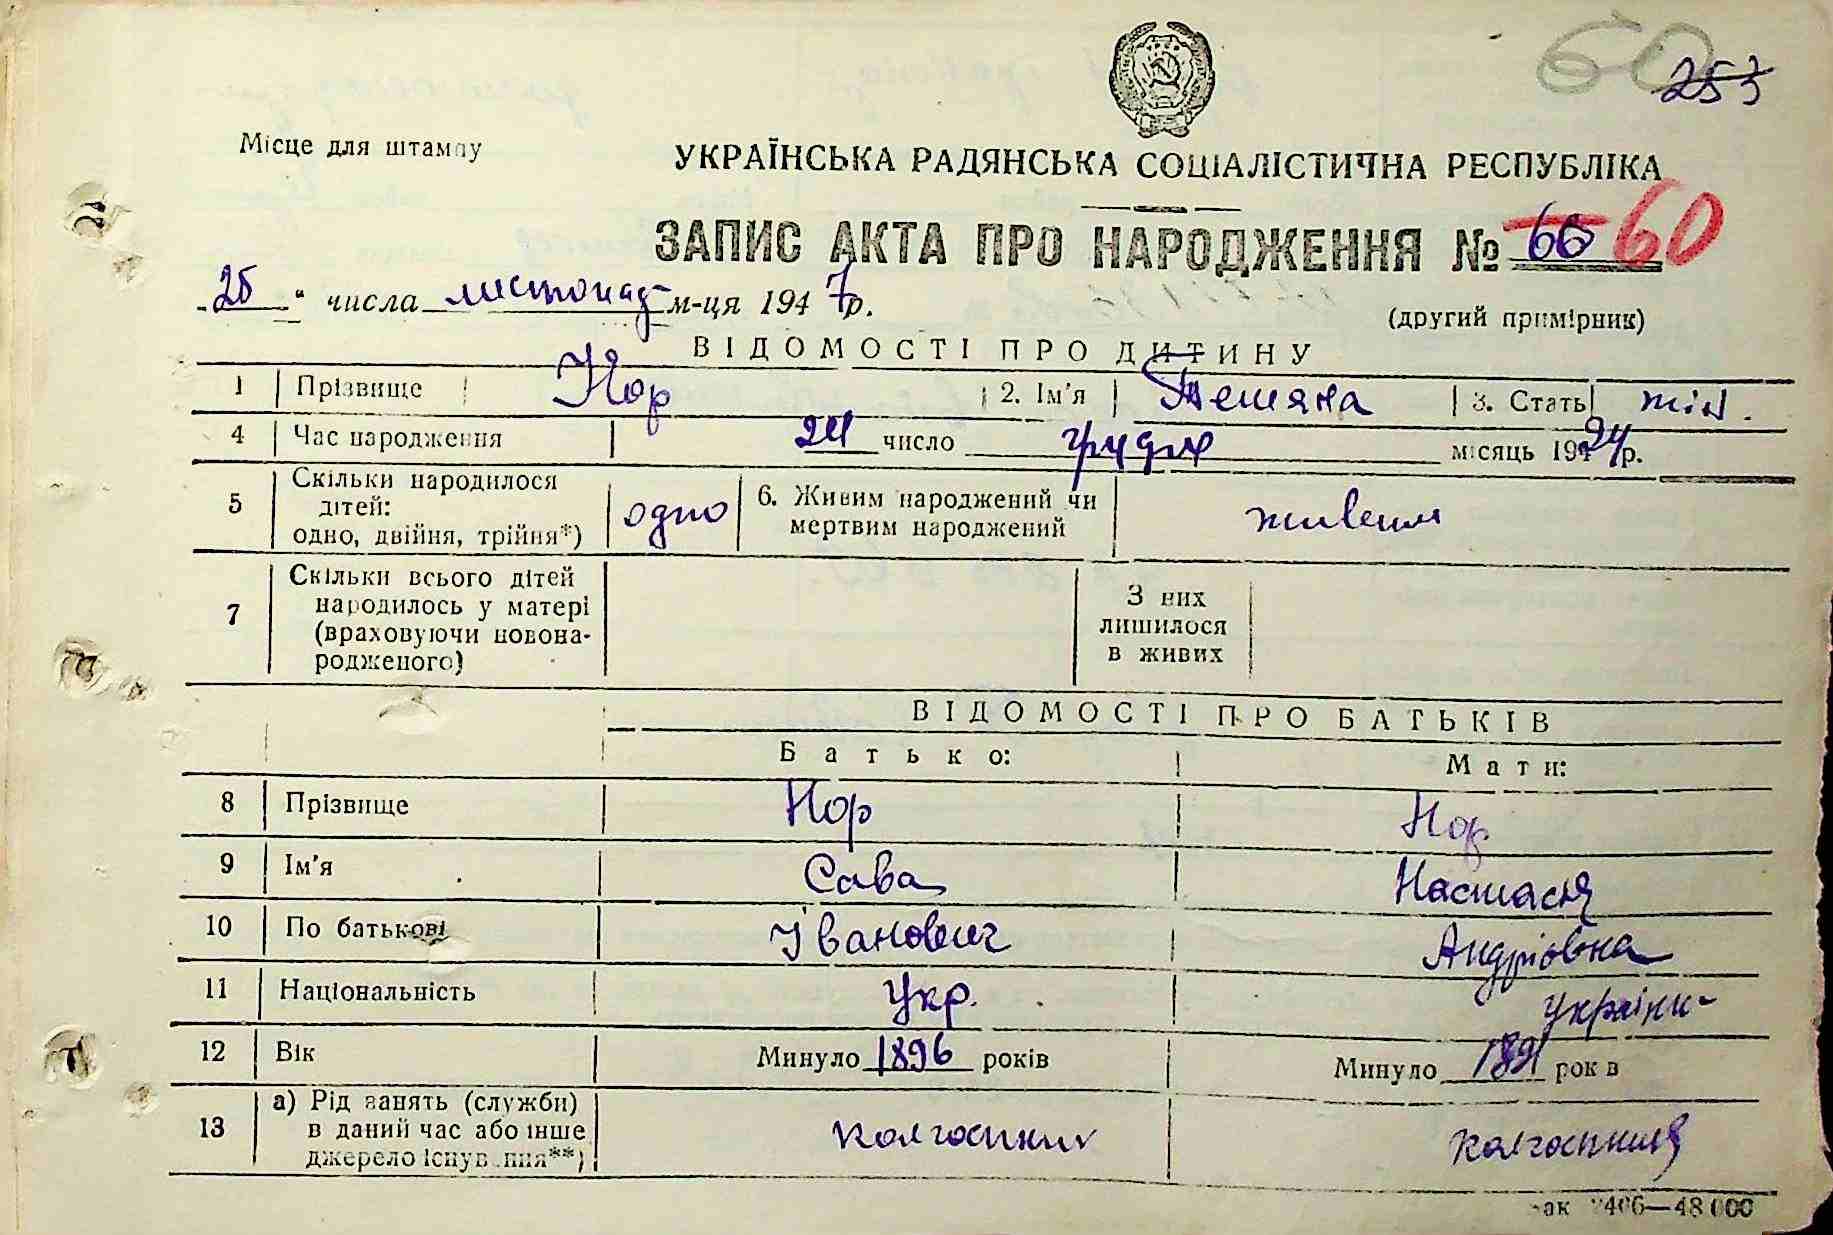 60
253
Місце для штампу
УКРАЇНСЬКА РАДЯНСЬКА СОЦІАЛІСТИЧНА РЕСПУБЛІКА
ЗАПИС АКТА ПРО НАРОДЖЕННЯ № 66 60
25 " числа листопад м-ця 1947 р.
(другий примірник)
ВІДОМОСТІ ПРО ДИТИНУ
1 Прізвище Нор 2. Ім'я Тетяна 3. Стать жін.
4 Час народження 24 число грудня місяць 1924 р.
5 Скільки народилося дітей: одно, двійня, трійня*) одно 6. Живим народжений чи мертвим народжений живим
7 Скільки всього дітей народилось у матері (враховуючи новонародженого) З них лишилося в живих
ВІДОМОСТІ ПРО БАТЬКІВ
Батько: Мати:
8 Прізвище Нор Нор
9 Ім'я Сава Настася
10 По батькові Іванович Андріовна
11 Національність Укр. україн-
12 Вік Минуло 1896 років Минуло 1891 рок в
13 а) Рід занять (служби) в даний час або інше джерело існування**) колгоспник колгоспниця
Зак 2406—48 000